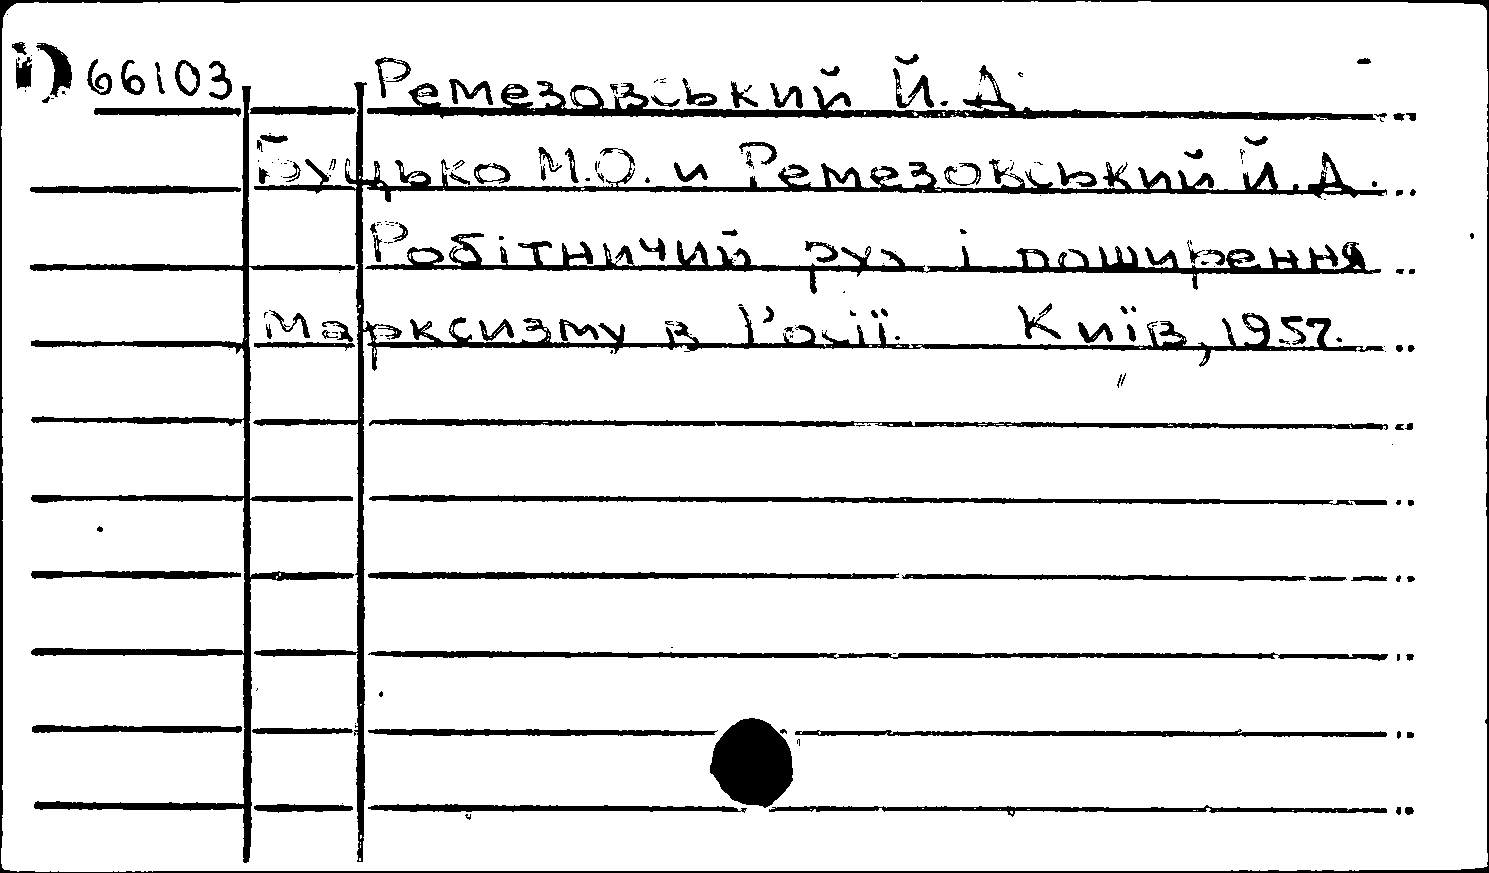 66103 Ремезовський Й. Д.
Буцько М.О. и Ремезовський Й. Д.
Робітничий рух і поширення
марксизму в Росії. Київ, 1957.